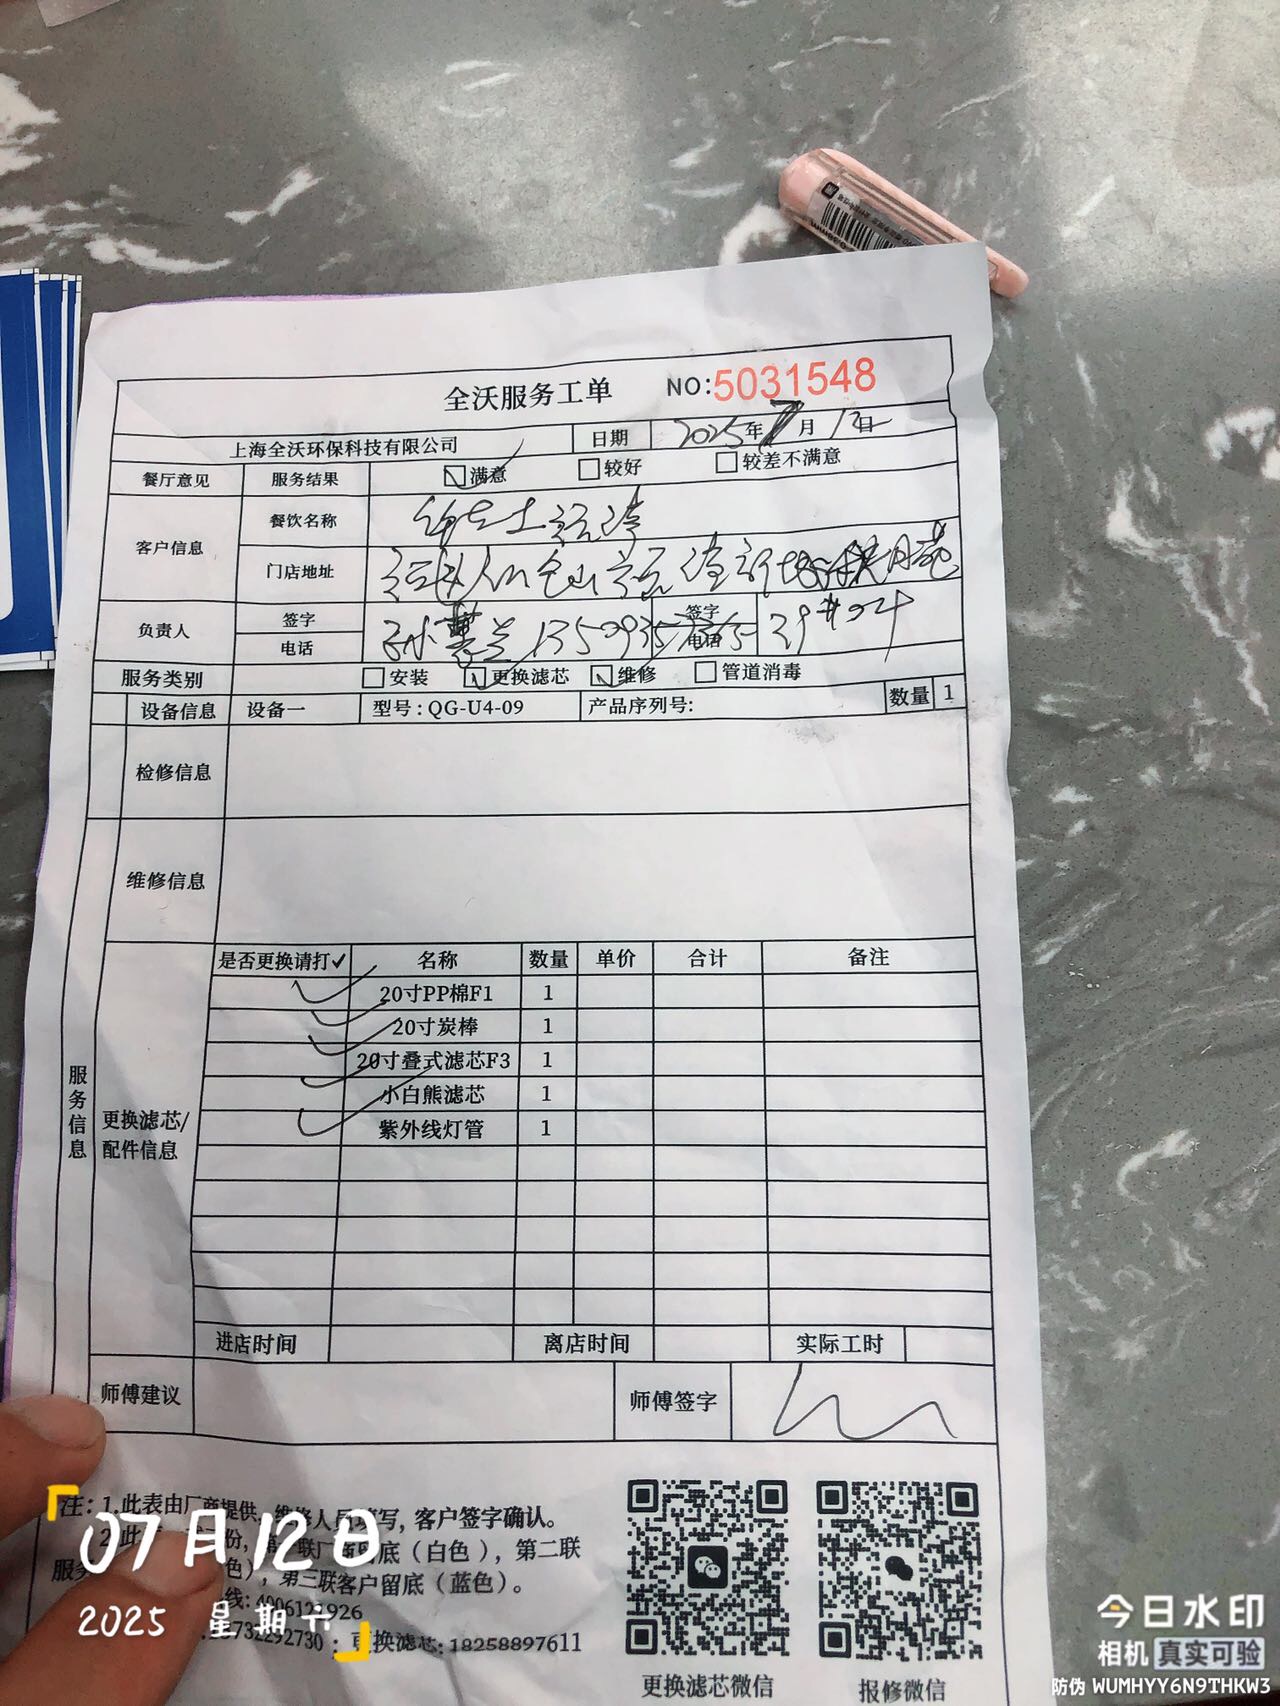 全沃服务工单 NO:5031548
上海全沃环保科技有限公司 日期 2025年7月12日
餐厅意见 服务结果 满意 较好 较差不满意
客户信息 餐饮名称
门店地址
负责人 签字 签字
电话 电话
服务类别 安装 更换滤芯 维修 管道消毒
设备信息 设备一 型号：QG-U4-09 产品序列号: 数量 1
检修信息
维修信息
服务信息
是否更换请打✓ 名称 数量 单价 合计 备注
✓ 20寸PP棉F1 1
✓ 20寸炭棒 1
✓ 20寸叠式滤芯F3 1
✓ 小白熊滤芯 1
✓ 紫外线灯管 1
更换滤芯/
配件信息
进店时间 离店时间 实际工时
师傅建议 师傅签字
注：1.此表由厂商提供，维修人员填写，客户签字确认。
联厂商留底（白色），第二联
服务 色），第三联客户留底（蓝色）。
线: 4006121926
732292730；更换滤芯: 18258897611
更换滤芯微信 报修微信
07月12日
2025 星期六
今日水印
相机 真实可验
防伪 WUMHYY6N9THKW3